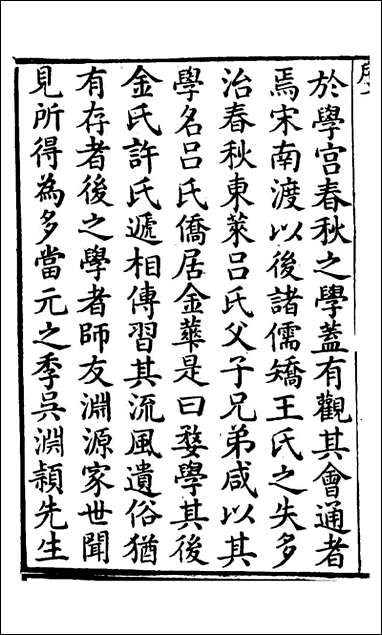 於學宮春秋之學蓋有觀其會通者
焉宋南渡以後諸儒矯王氏之失多
治春秋東萊呂氏父子兄弟咸以其
學名呂氏僑居金華是曰婺學其後
金氏許氏遞相傳習其流風遺俗猶
有存者後之學者師友淵源家世聞
見所得為多當元之季吳淵頴先生